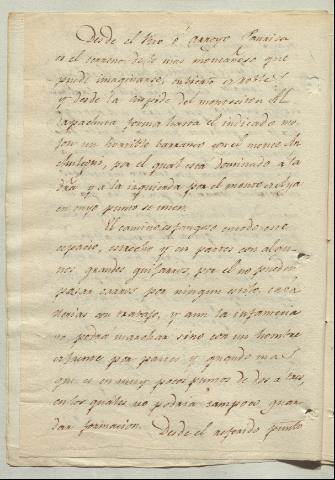 Desde el Rio ó Arroyo
es el terreno de lo mas montañoso que
puede imaginarse, cubierto de Robles
y desde la cuspide del monte
forma hasta el indicado
un horrible barranco con el monte
por el qual está dominado a la
dra. y a la izquierda por el monte
en cuyo punto se unen.
El camino es fangoso en todo este
espacio, estrecho y en partes con algu-
nos grandes guijarros, por el no pueden
pasar carros por ningun estilo, caba
llerias con trabajo, y aun la infanteria
no podrá marchar sino con un hombre
de frente por partes y quando mas
que es en muy pocos puntos de dos a tres,
en los quales no podria tampoco guar
dar formacion. Desde el referido punto